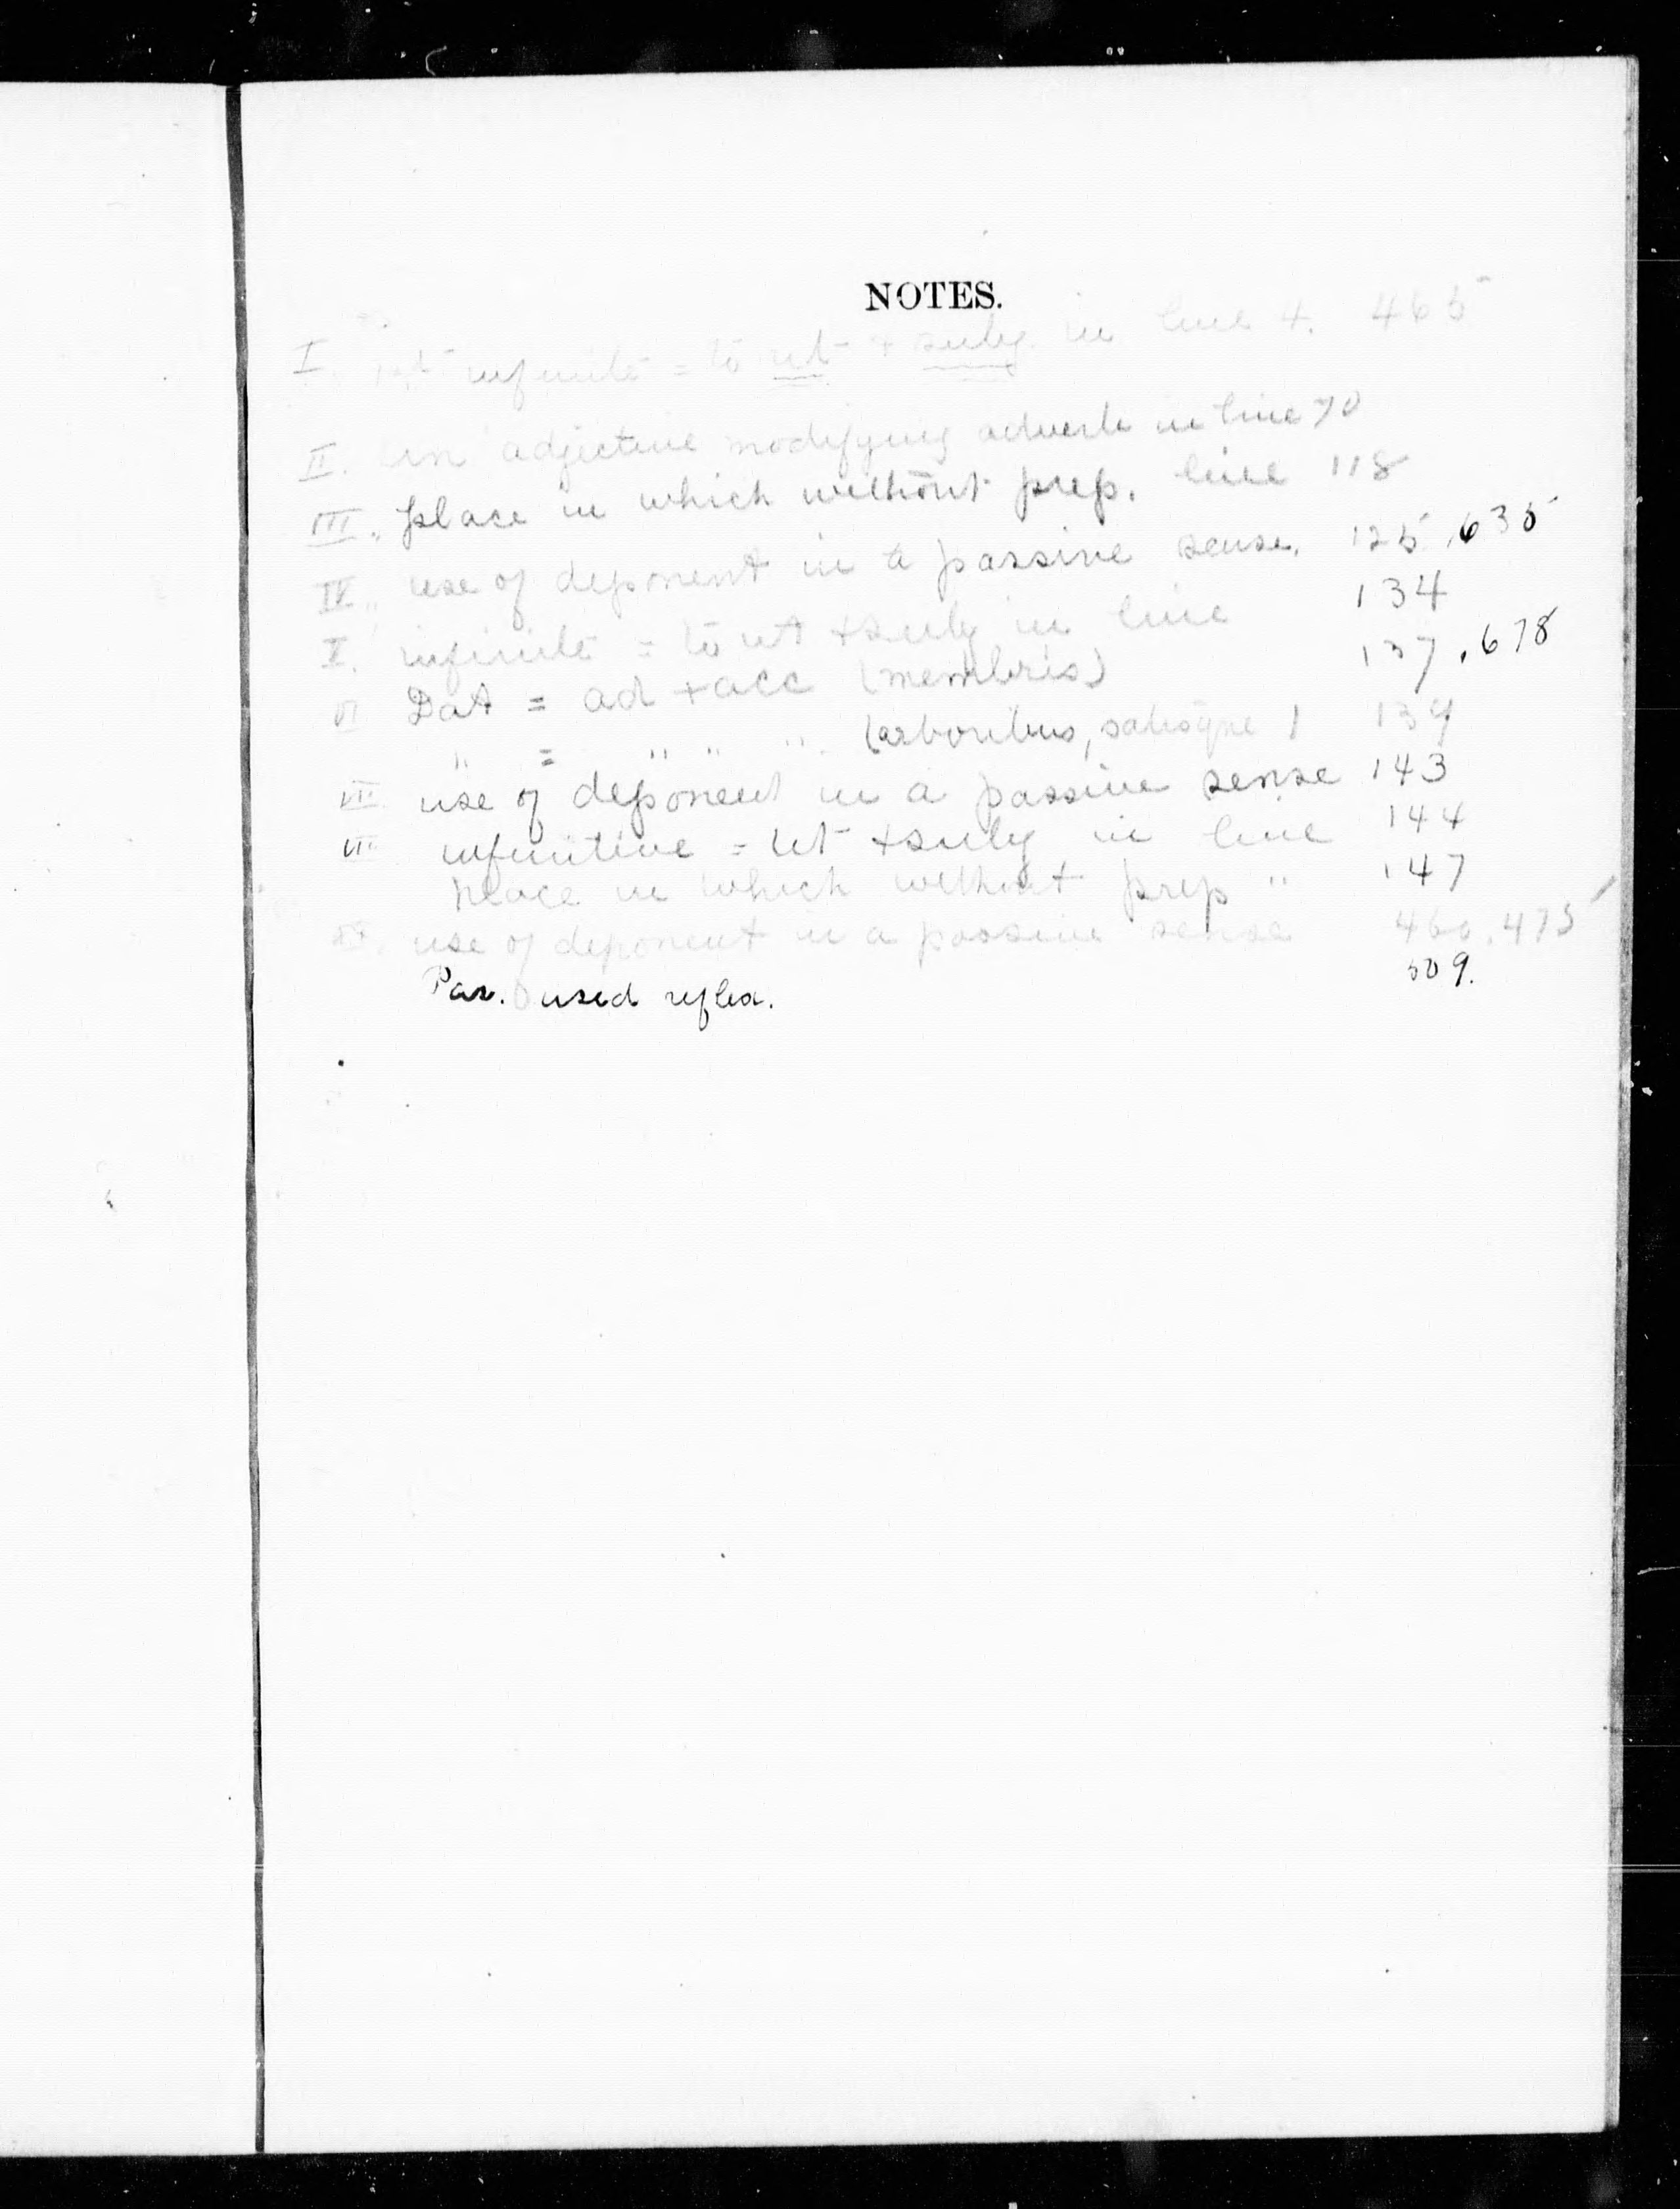 NOTES.
I. infinite = to ut + subj. in line 4. 465
II. An adjective modifying adverb in line 70
III. place in which without prep. line 118
IV. use of deponent in a passive sense. 125, 635
V. infinite = to ut + subj in line 134
VI Dat = ad + acc (membris) 137, 678
" = " " " (arboribus, satisque) 139
VII use of deponent in a passive sense 143
VIII infinitive = ut + subj in line 144
place in which without prep " 147
use of deponent in a passive sense 460, 475
Pas. used reflex. 509.